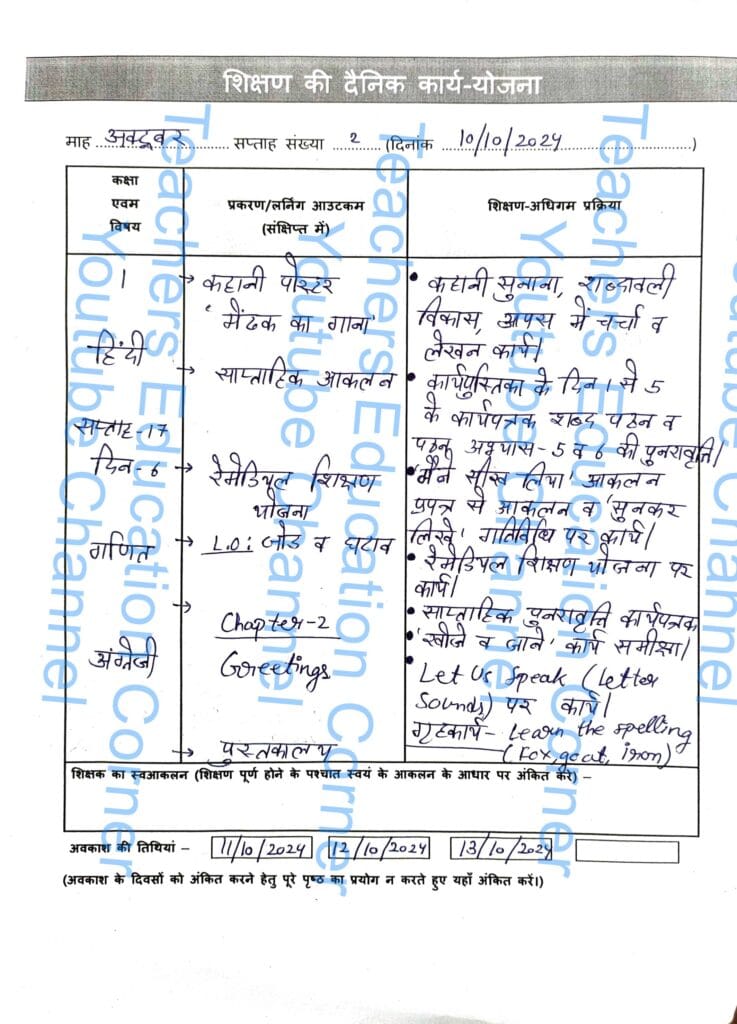 शिक्षण की दैनिक कार्य-योजना
माह अक्टूबर सप्ताह संख्या 2 (दिनांक 10/10/2024)
कक्षा
एवम
विषय
प्रकरण/लर्निग आउटकम
(संक्षिप्त में)
शिक्षण-अधिगम प्रक्रिया
1
हिंदी
सप्ताह-17
दिन-6
गणित
अंग्रेजी
→ कहानी पोस्टर
'मेंढक का गाना'
→ साप्ताहिक आकलन
→ रेमेडियल शिक्षण
योजना
L.O: जोड व घटाव
→
Chapter-2
Greetings
→ पुस्तकालय
• कहानी सुनाना, शब्दावली
विकास, आपस में चर्चा व
लेखन कार्य।
• कार्यपुस्तिका के दिन 1 से 5
के कार्यपत्रक शब्द पठन व
पठन अभ्यास-5 व 6 की पुनरावृत्ति।
• 'मैंने सीख लिया' आकलन
प्रपत्र से आकलन व 'सुनकर
लिखे' गतिविधि पर कार्य।
• रेमेडियल शिक्षण योजना पर
कार्य।
• साप्ताहिक पुनरावृति कार्यपत्रक
• 'खोजे व जाने' कार्य समीक्षा।
• Let Us Speak (Letter
Sounds) पर कार्य।
गृहकार्य- Learn the spelling
(Fox, goat, iron)
शिक्षक का स्वआकलन (शिक्षण पूर्ण होने के पश्चात स्वयं के आकलन के आधार पर अंकित करें) –
अवकाश की तिथियां – 11/10/2024 12/10/2024 13/10/2024
(अवकाश के दिवसों को अंकित करने हेतु पूरे पृष्ठ का प्रयोग न करते हुए यहाँ अंकित करें।)
Teachers Education Corner
Youtube Channel
Teachers Education Corner
Youtube Channel
Teachers Education Corner
Youtube Channel